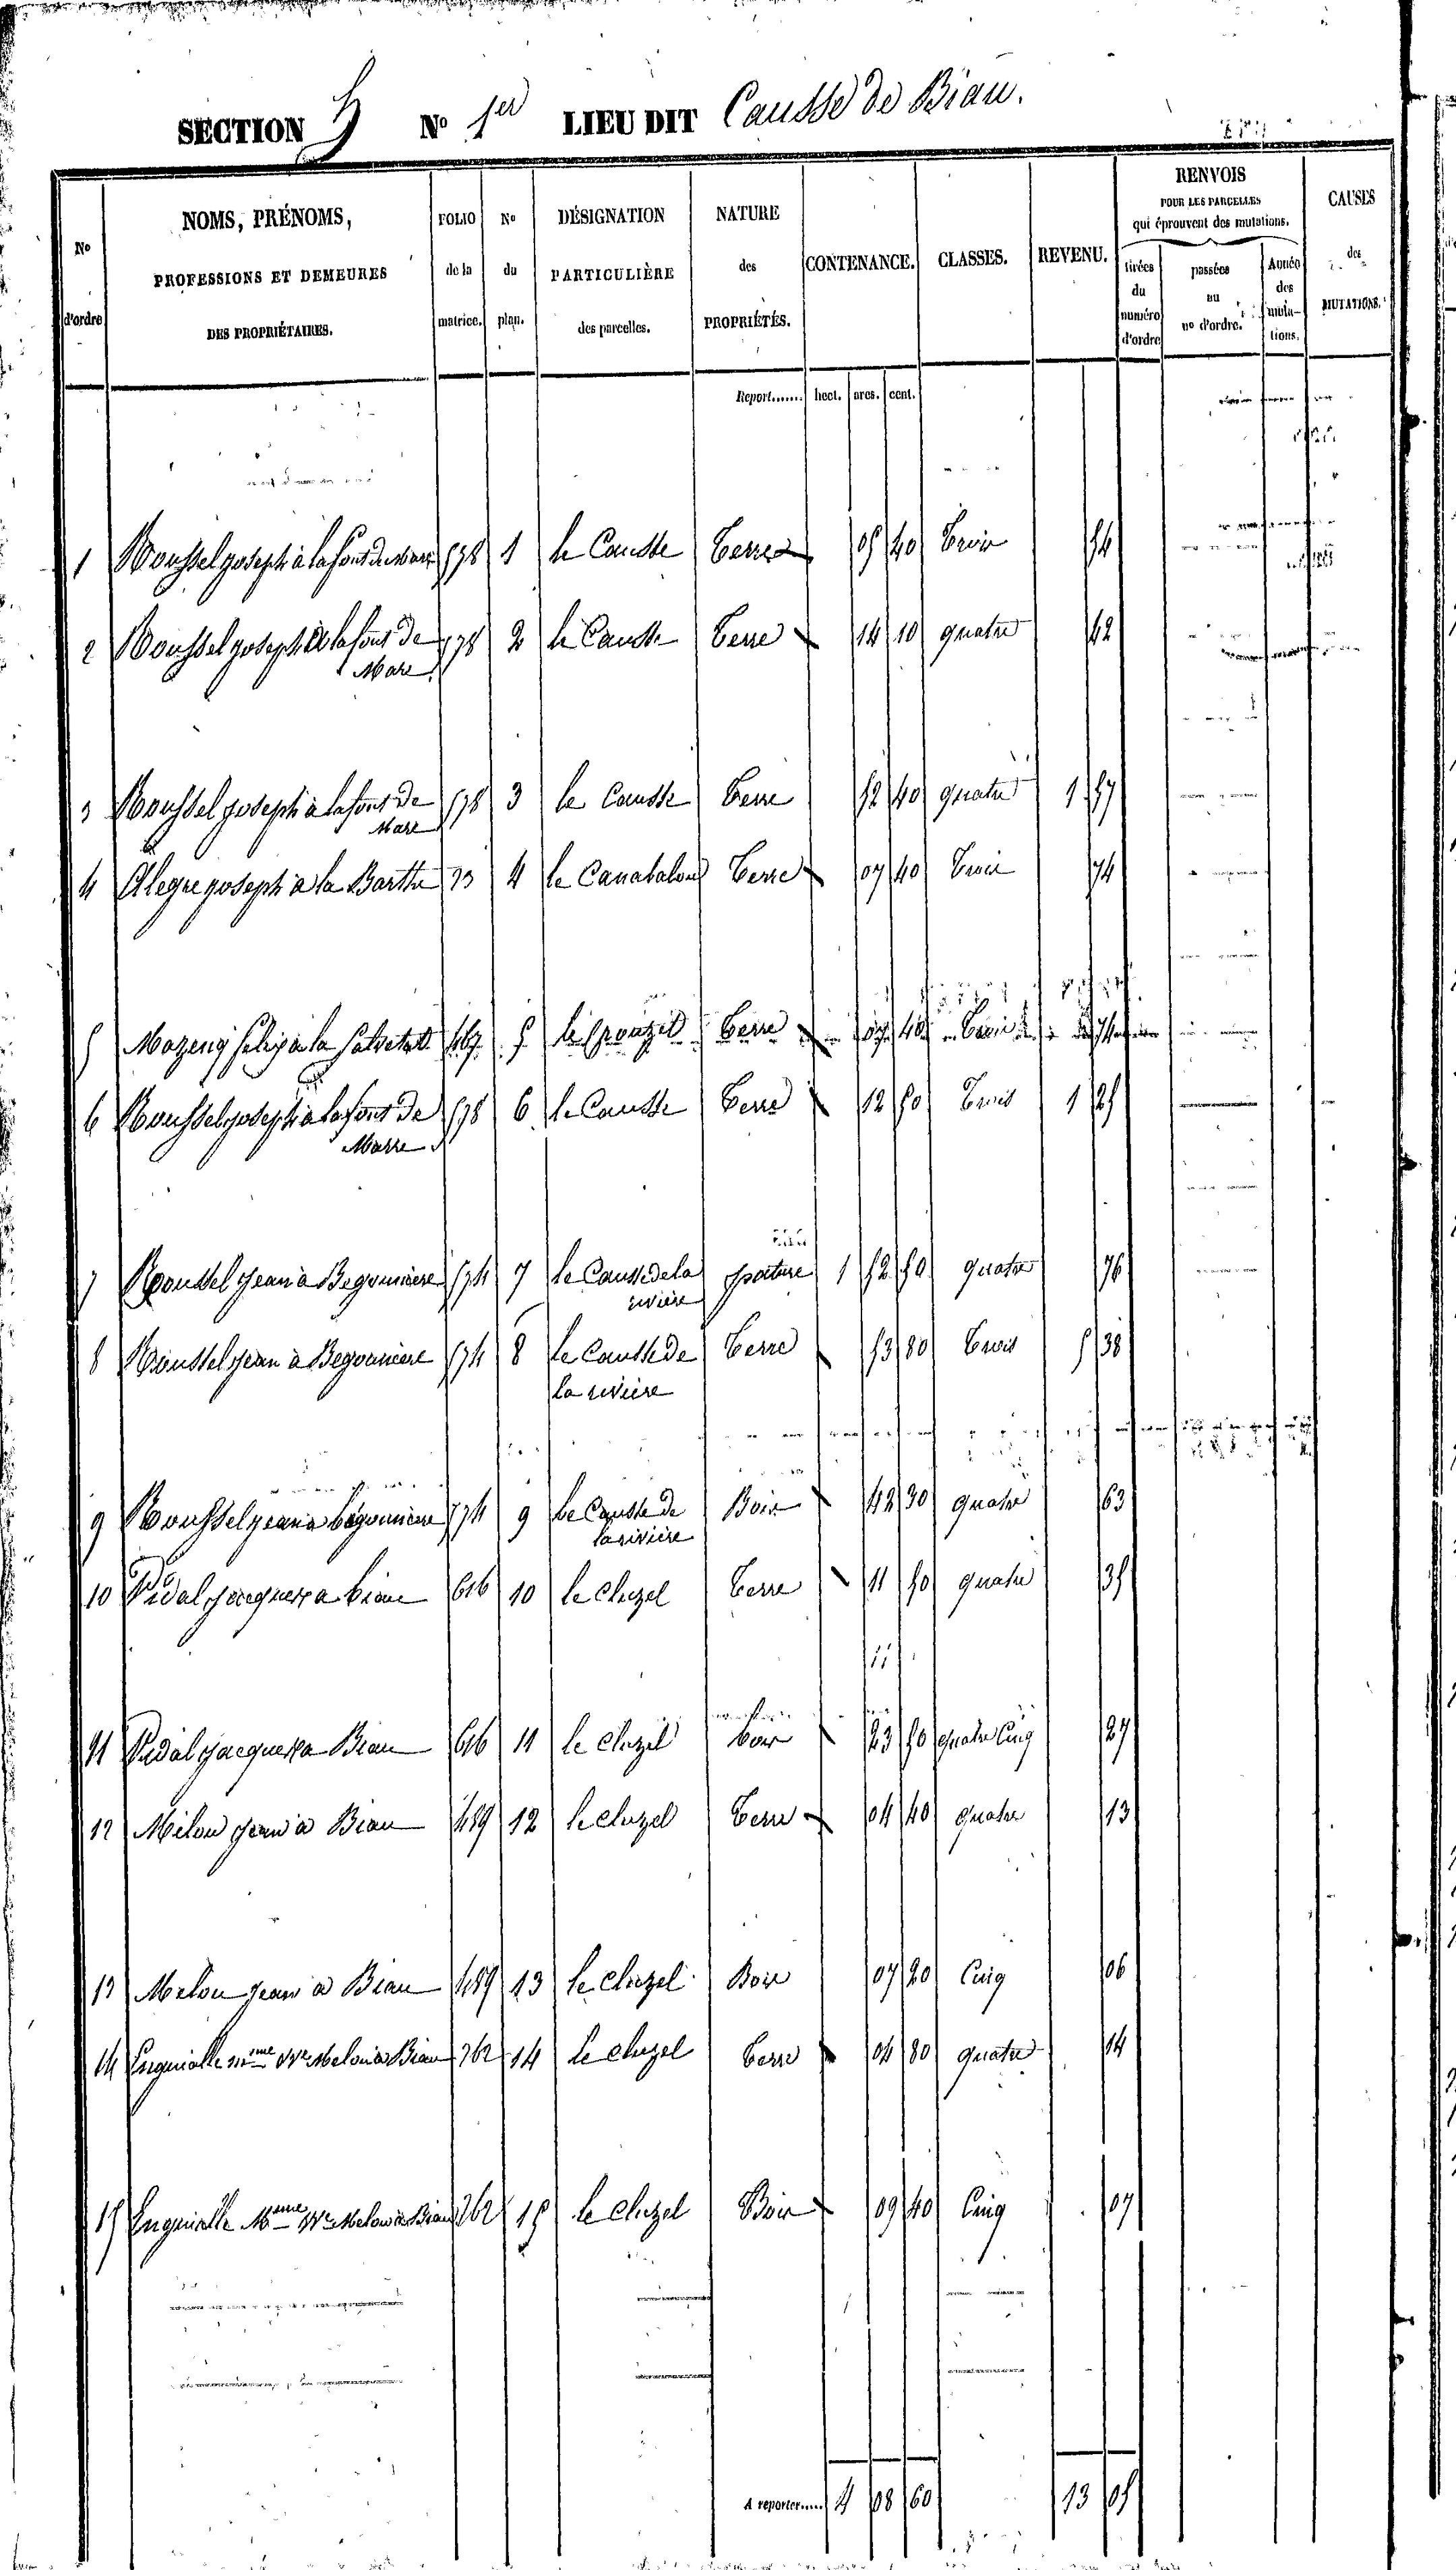 SECTION G N° 1er LIEU DIT Causse de Biau.
N° d'ordre | NOMS, PRÉNOMS, PROFESSIONS ET DEMEURES DES PROPRIÉTAIRES. | FOLIO de la matrice. | N° du plan. | DÉSIGNATION PARTICULIÈRE des parcelles. | NATURE des PROPRIÉTÉS. | CONTENANCE. | CLASSES. | REVENU. | RENVOIS POUR LES PARCELLES qui éprouvent des mutations. | tirées du numéro d'ordre | passées au no d'ordre. | Année des mutations. | CAUSES des MUTATIONS.
Report....... hect. ares. cent.
1 Roussel joseph à lafont de 578 1 le Causse Terre 05 40 Trois 54
2 Roussel joseph à lafont de 578 2 le Causse Terre 14 10 quatre 42
Mare
3 Roussel joseph à lafont de 578 3 le Causse Terre 52 40 quatre 1 57
Mare
4 Alegre joseph à la Barthe 23 4 le Terre 07 40 Trois 74
5 Mazeng felix à la Salvetat 5 le Terre 07 40 Trois
6 Roussel joseph à lafont de 578 6 le Causse Terre 12 50 Trois 1 25
Marre
7 Roussel jean à Begouniere 574 7 le Causse de la pature 1 52 50 quatre 76
rivière
8 Roussel jean à Begouniere 574 8 le Causse de Terre 53 80 Trois 5 38
la rivière
9 Roussel jean à begouniere 574 9 le Causse de Bois 42 30 quatre 63
la rivière
10 Vidal jacques a biau 616 10 le cluzel Terre 11 50 quatre 35
11 Vidal jacques a Biau 616 11 le cluzel bois 23 50 quatre Cinq 27
12 Melou jean à Biau 489 12 le cluzel Terre 04 40 quatre 13
13 Melou jean à Biau 489 13 le cluzel Bois 07 20 Cinq 06
14 Enguialle Mme Vve Melou à Biau 262 14 le cluzel Terre 04 80 quatre 14
15 Enguialle Mme Vve Melou à Biau 262 15 le cluzel Bois 09 40 Cinq 07
A reporter..... 4 08 60 13 05